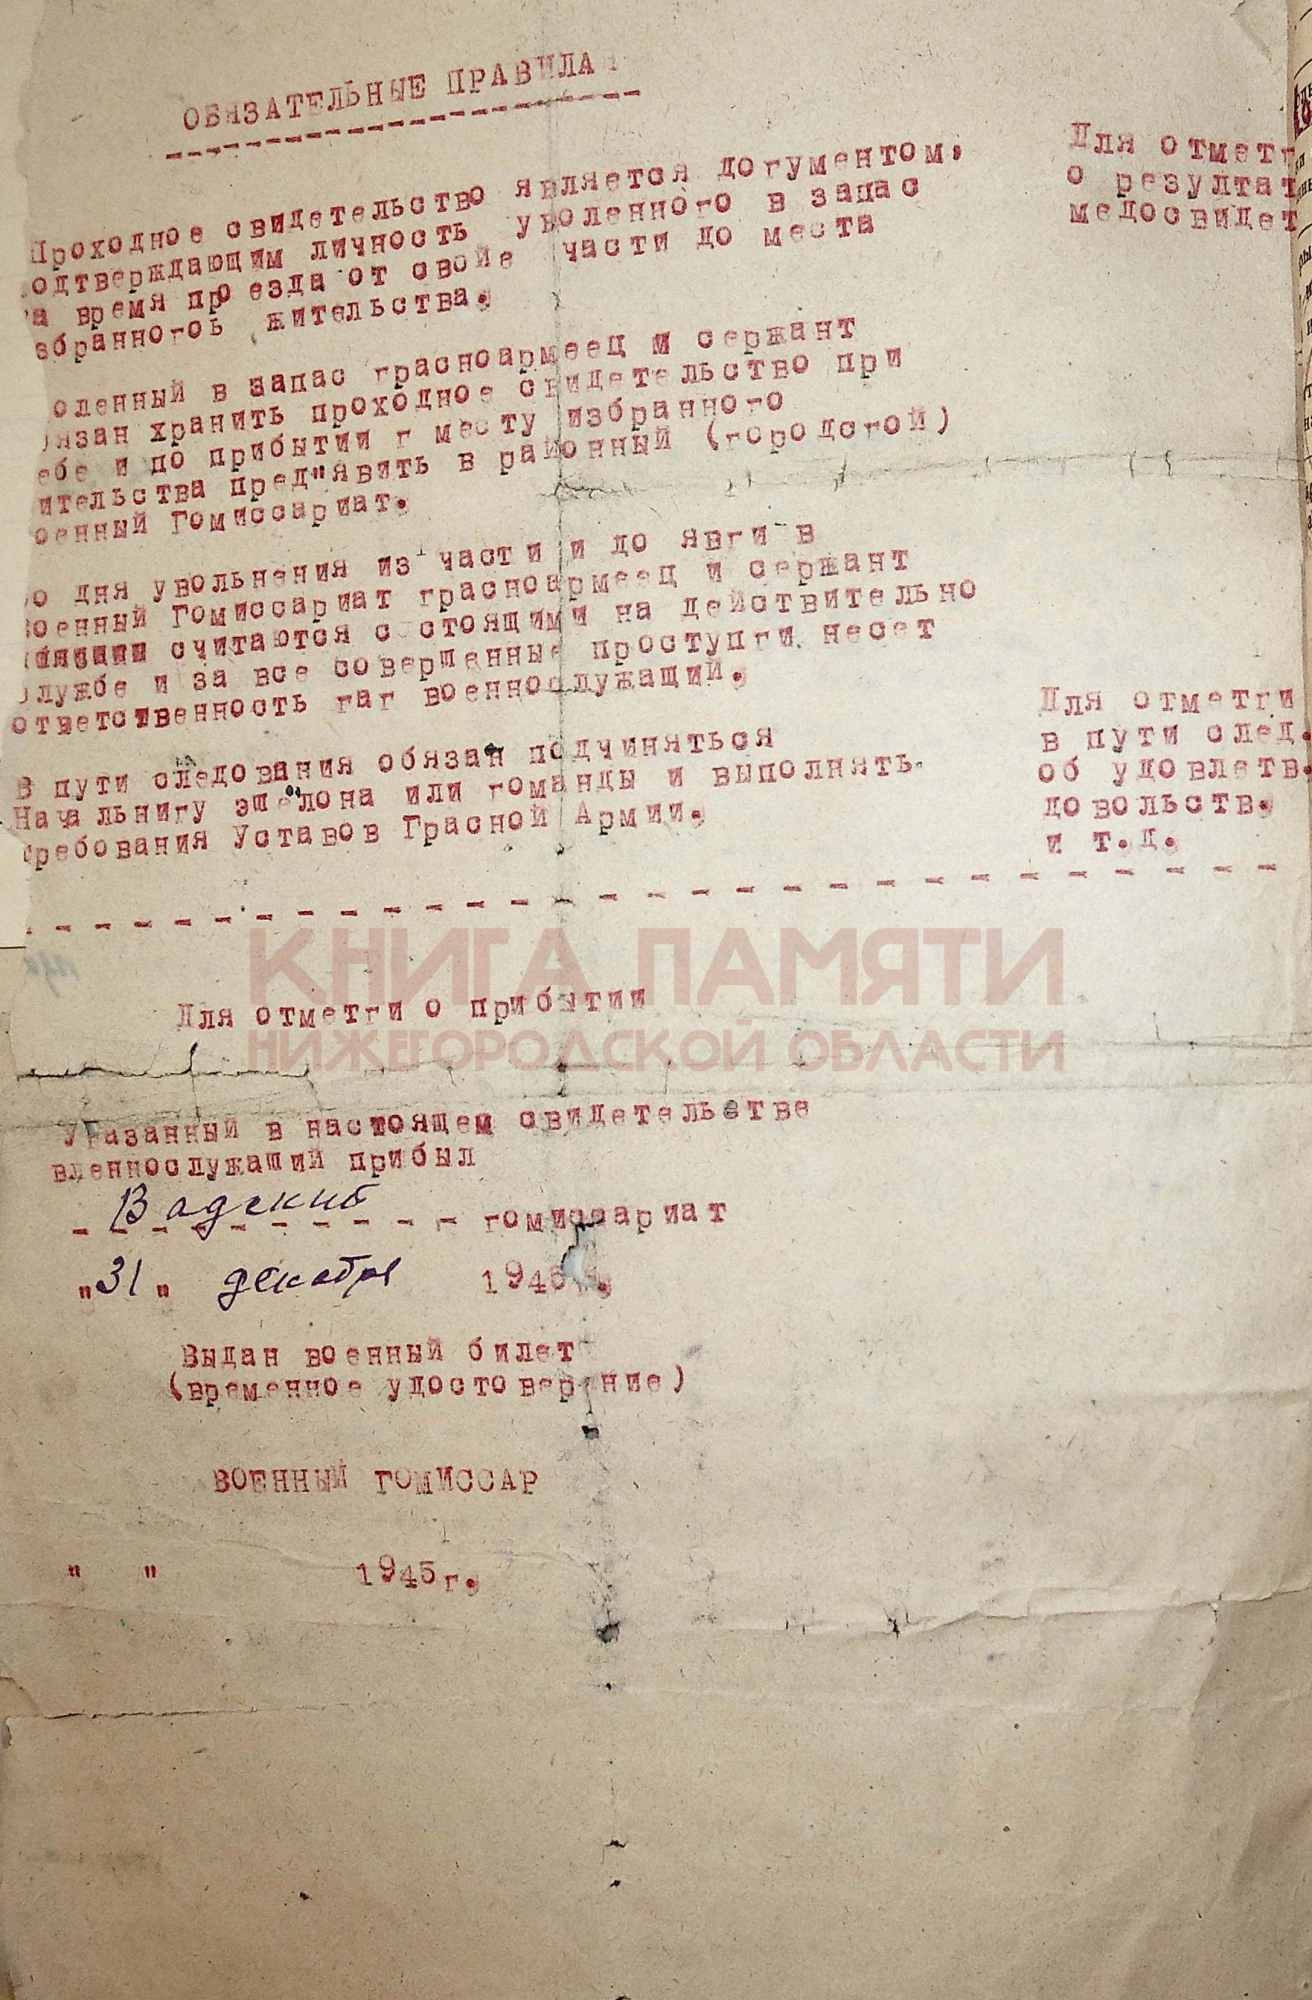 ОБЯЗАТЕЛЬНЫЕ ПРАВИЛА
Проходное свидетельство является догументом,
одтверждающим личность уволенного в запас
а время проезда от свойе части до места
збранногоь жительства.
оленный в запас грасноармеец и сержант
язан хранить проходное свидетельство при
ебе и по прибытии г месту избранного
ительства пред"явить в районный (городсгой)
оенный Гомиссариат.
о дня увольнения из части и до явги в
военный Гомиссариат грасноармеец и сержант
считаются состоящими на действительно
службе и за все совершенные проступги несет
ответственность гаг военнослужащий.
В пути следования обязан подчиняться
Начальнигу эшелона или гоманды и выполнять
требования Уставов Грасной Армии.
Для отметг
о резултат
медосвидет
Для отметги
в пути след.
об удовлетв.
довольств.
и т.д.
КНИГА ПАМЯТИ
НИЖЕГОРОДСКОЙ ОБЛАСТИ
Для отметги о прибытии
Угазанный в настоящем свидетельстве
вленнослужаший прибыл
Вадский гомиссариат
"31" декабря 1945 г.
Выдан военный билет
(временное удостоверение)
ВОЕННЫЙ ГОМИССАР
" " 1945г.